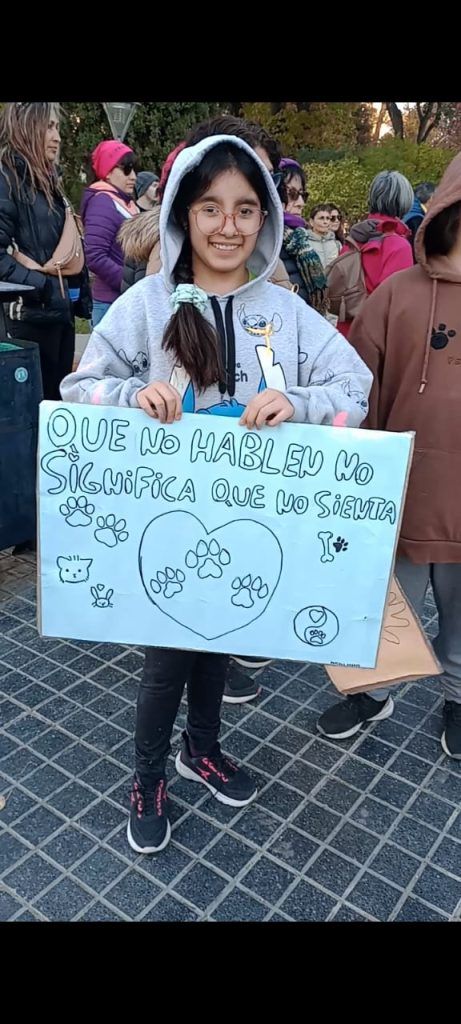 QUE NO HABLEN NO
SIGNIFICA QUE NO SIENTA